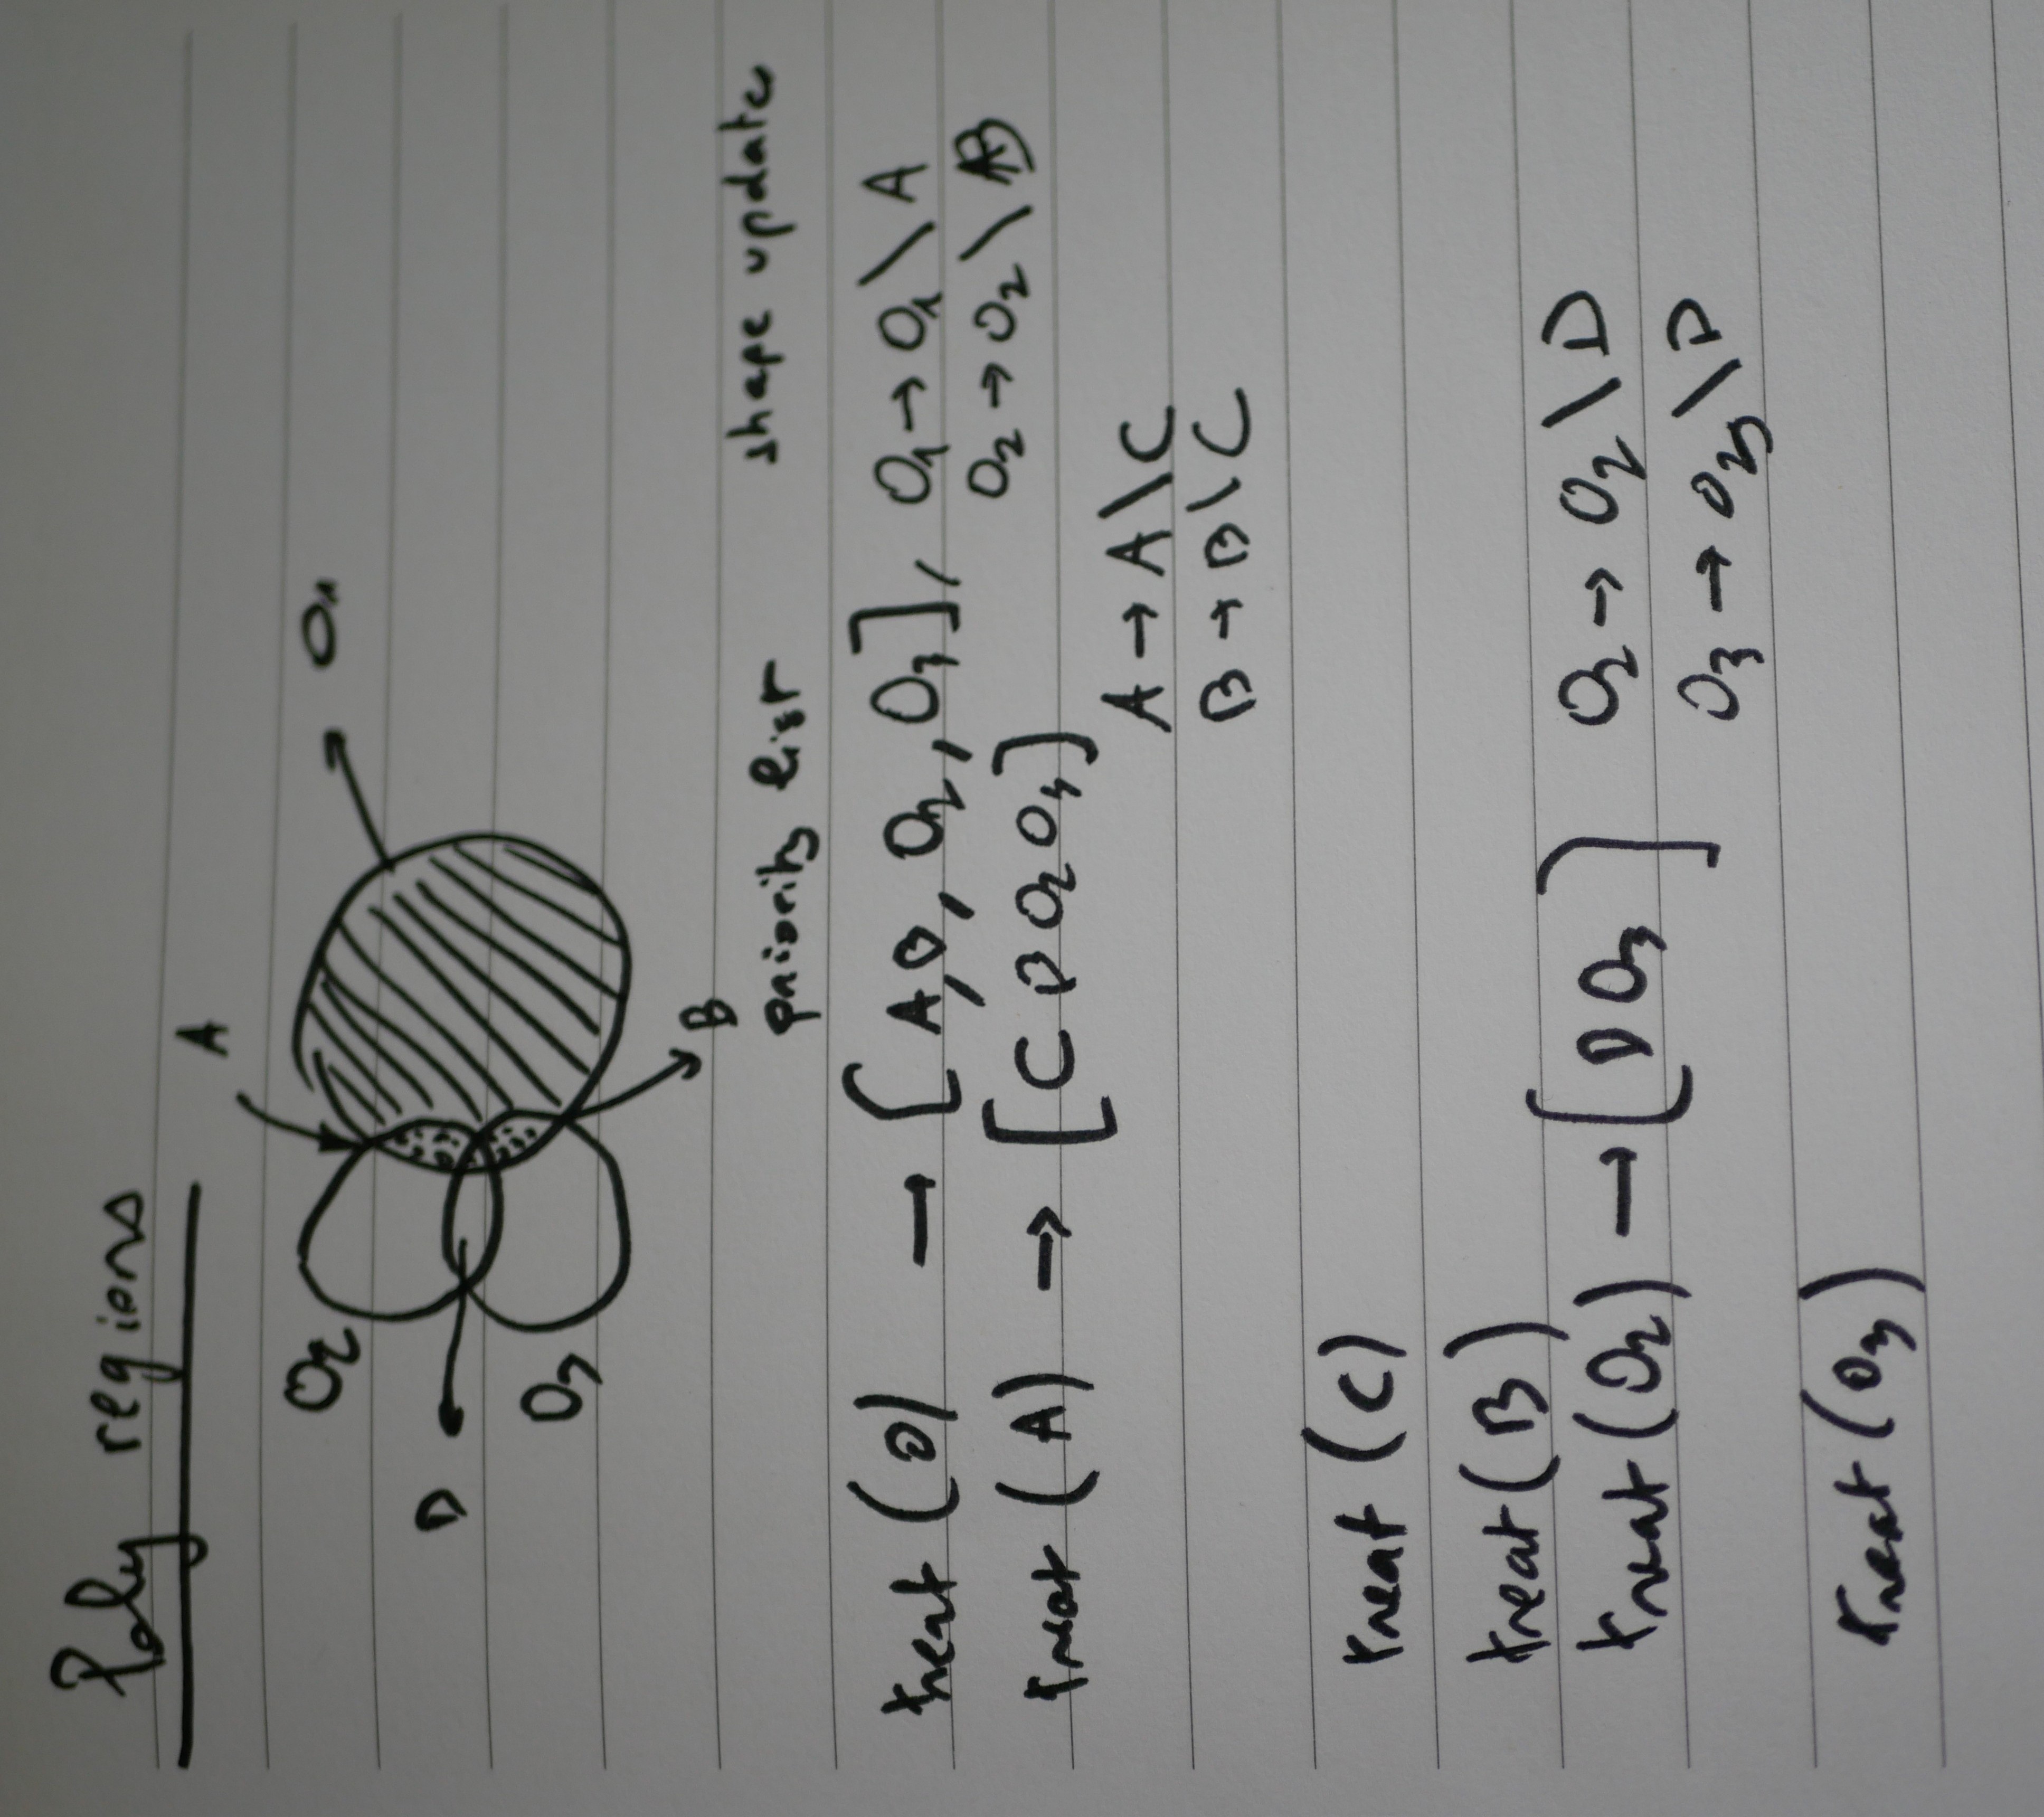 Poly regions
A
O₂
O₁
D
O₃
B
priority list shape update
treat (O) → [ A, B, O₂, O₃ ], O₁ → O₁ \ A
O₂ → O₂ \ AB
treat ( A ) → [ C B O₂ O₃ ]
A → A \ C
B → B \ C
treat ( C )
treat ( B )
treat ( O₂ ) → [ D O₃ ] O₂ → O₂ \ D
O₃ → O₃ \ D
treat ( O₃ )